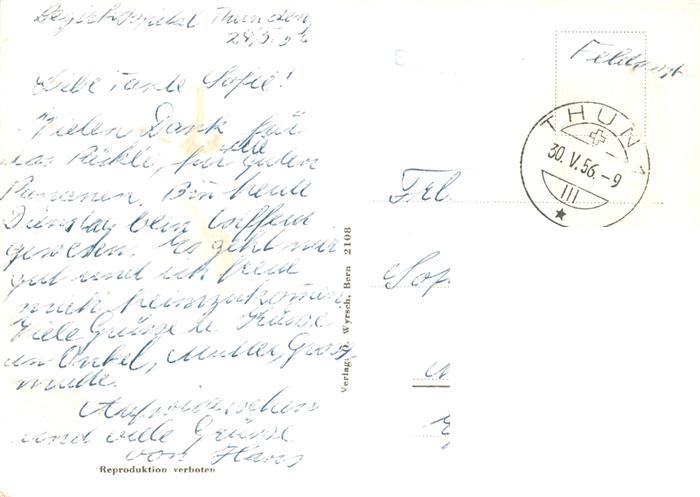 Bezirksspital Thun den
28/5. 56
Liebe Tante Sofie!
Vielen Dank für
das Päckli, für die guten
Bin heute
Dienstag beim
gewesen. Es geht mir
gut und ich freue
mich heimzukommen
Viele Grüsse u. Küsse
an Onkel, Mutter, Gross
mutter.
Aufwiedersehen
und viele Grüsse
von Hans
Reproduktion verboten
Verlag: Wyrsch, Bern 2108
Feldpost
THUN 1
30.V.56.-9
III
Frl.
Sof